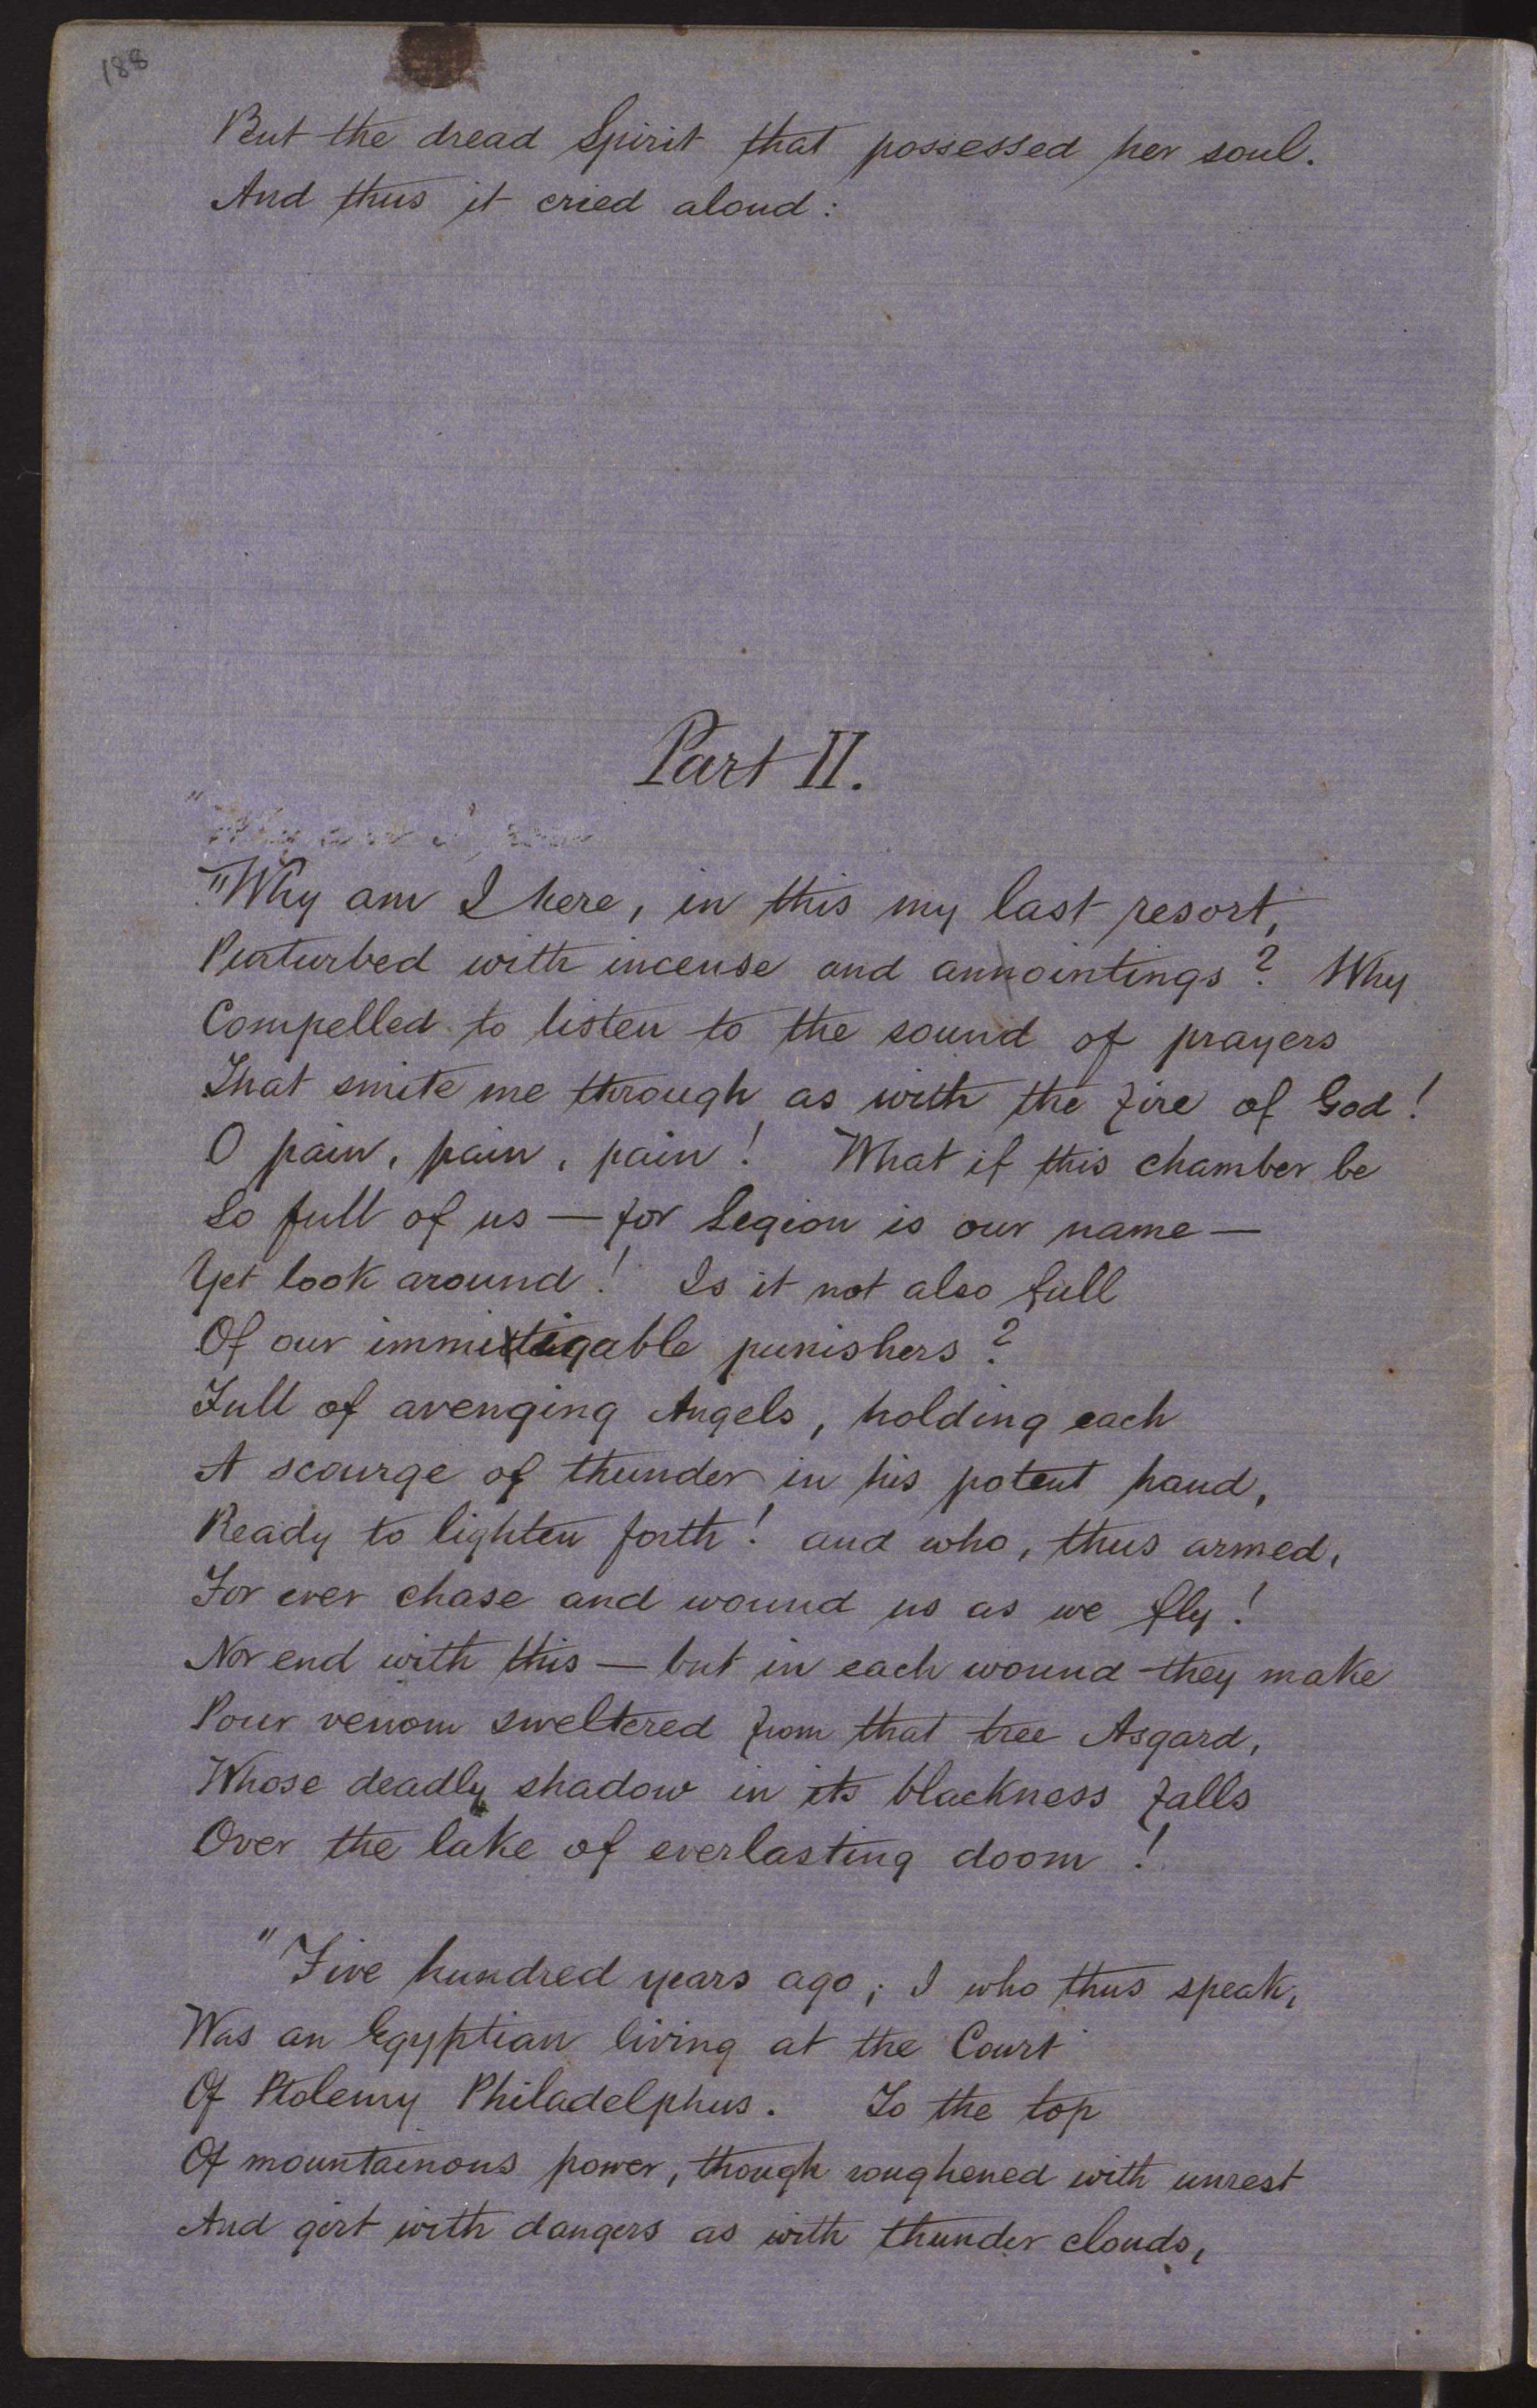 188
But the dread Spirit that possessed her soul.
And thus it cried aloud:
Part II.
"Why am I here, in this my last resort,
Perturbed with incense and annointings? Why
Compelled to listen to the sound of prayers
That smite me through as with the fire of God!
O pain, pain, pain! What if this chamber be
So full of us — for Legion is our name —
Yet look around! Is it not also full
Of our immitigable punishers?
Full of avenging Angels, holding each
A scourge of thunder in his potent hand,
Ready to lighten forth! and who, thus armed,
For ever chase and wound us as we fly!
Nor end with this — but in each wound they make
Pour venom sweltered from that tree Asgard,
Whose deadly shadow in its blackness falls
Over the lake of everlasting doom!
"Five hundred years ago, I who thus speak,
Was an Egyptian living at the Court
Of Ptolemy Philadelphus. To the top
Of mountainous power, though roughened with unrest
And girt with dangers as with thunder clouds,